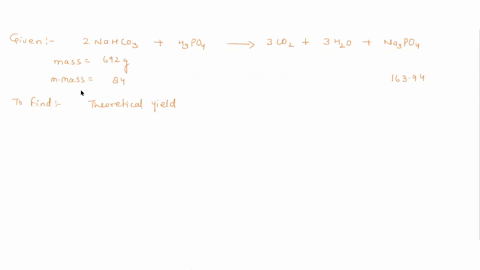 Given:- 2 NaHCO3 + H3PO4 → 3CO2 + 3H2O + Na3PO4
mass = 692 g
m.mass = 84 163.94
To find:- Theoretical yield